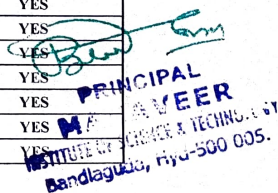 YES
YES
YES
YES
YES
YES
YES
PRINCIPAL
VEER
INSTITUTE OF SCIENCE & TECHNOLOGY
Bandlaguda, Hyd-500 005.